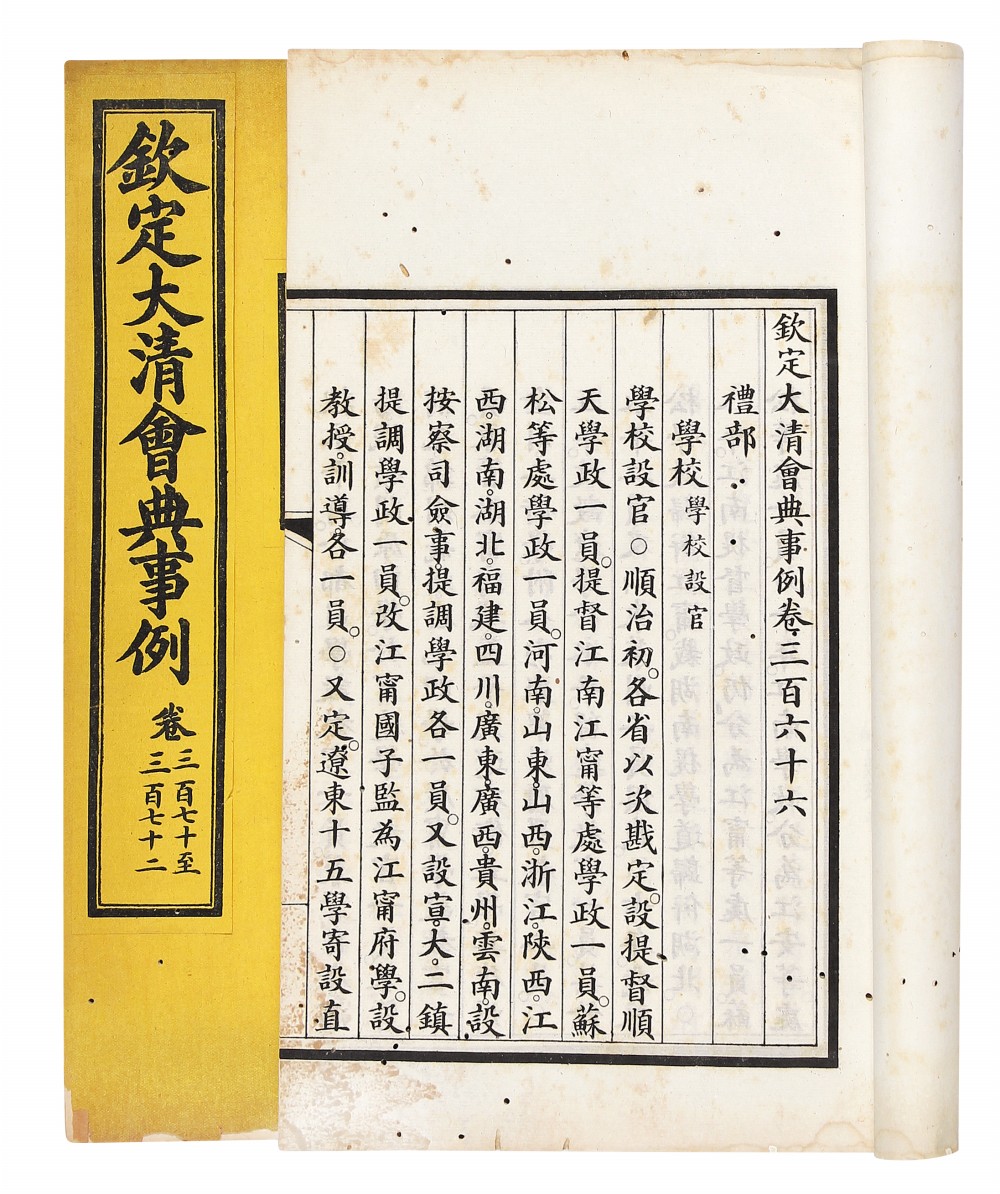 欽定大清會典事例 卷三百七十至三百七十二
欽定大清會典事例卷三百六十六
禮部
學校學校設官
學校設官○順治初。各省以次戡定。設提督順
天學政一員。提督江南江甯等處學政一員。蘇
松等處學政一員。河南。山東。山西。浙江。陝西。江
西。湖南。湖北。福建。四川。廣東。廣西。貴州。雲南。設
按察司僉事。提調學政各一員。又設宣。大。二鎮
提調學政一員。改江甯國子監為江甯府學。設
教授。訓導。各一員。○又定。遼東十五學寄設直